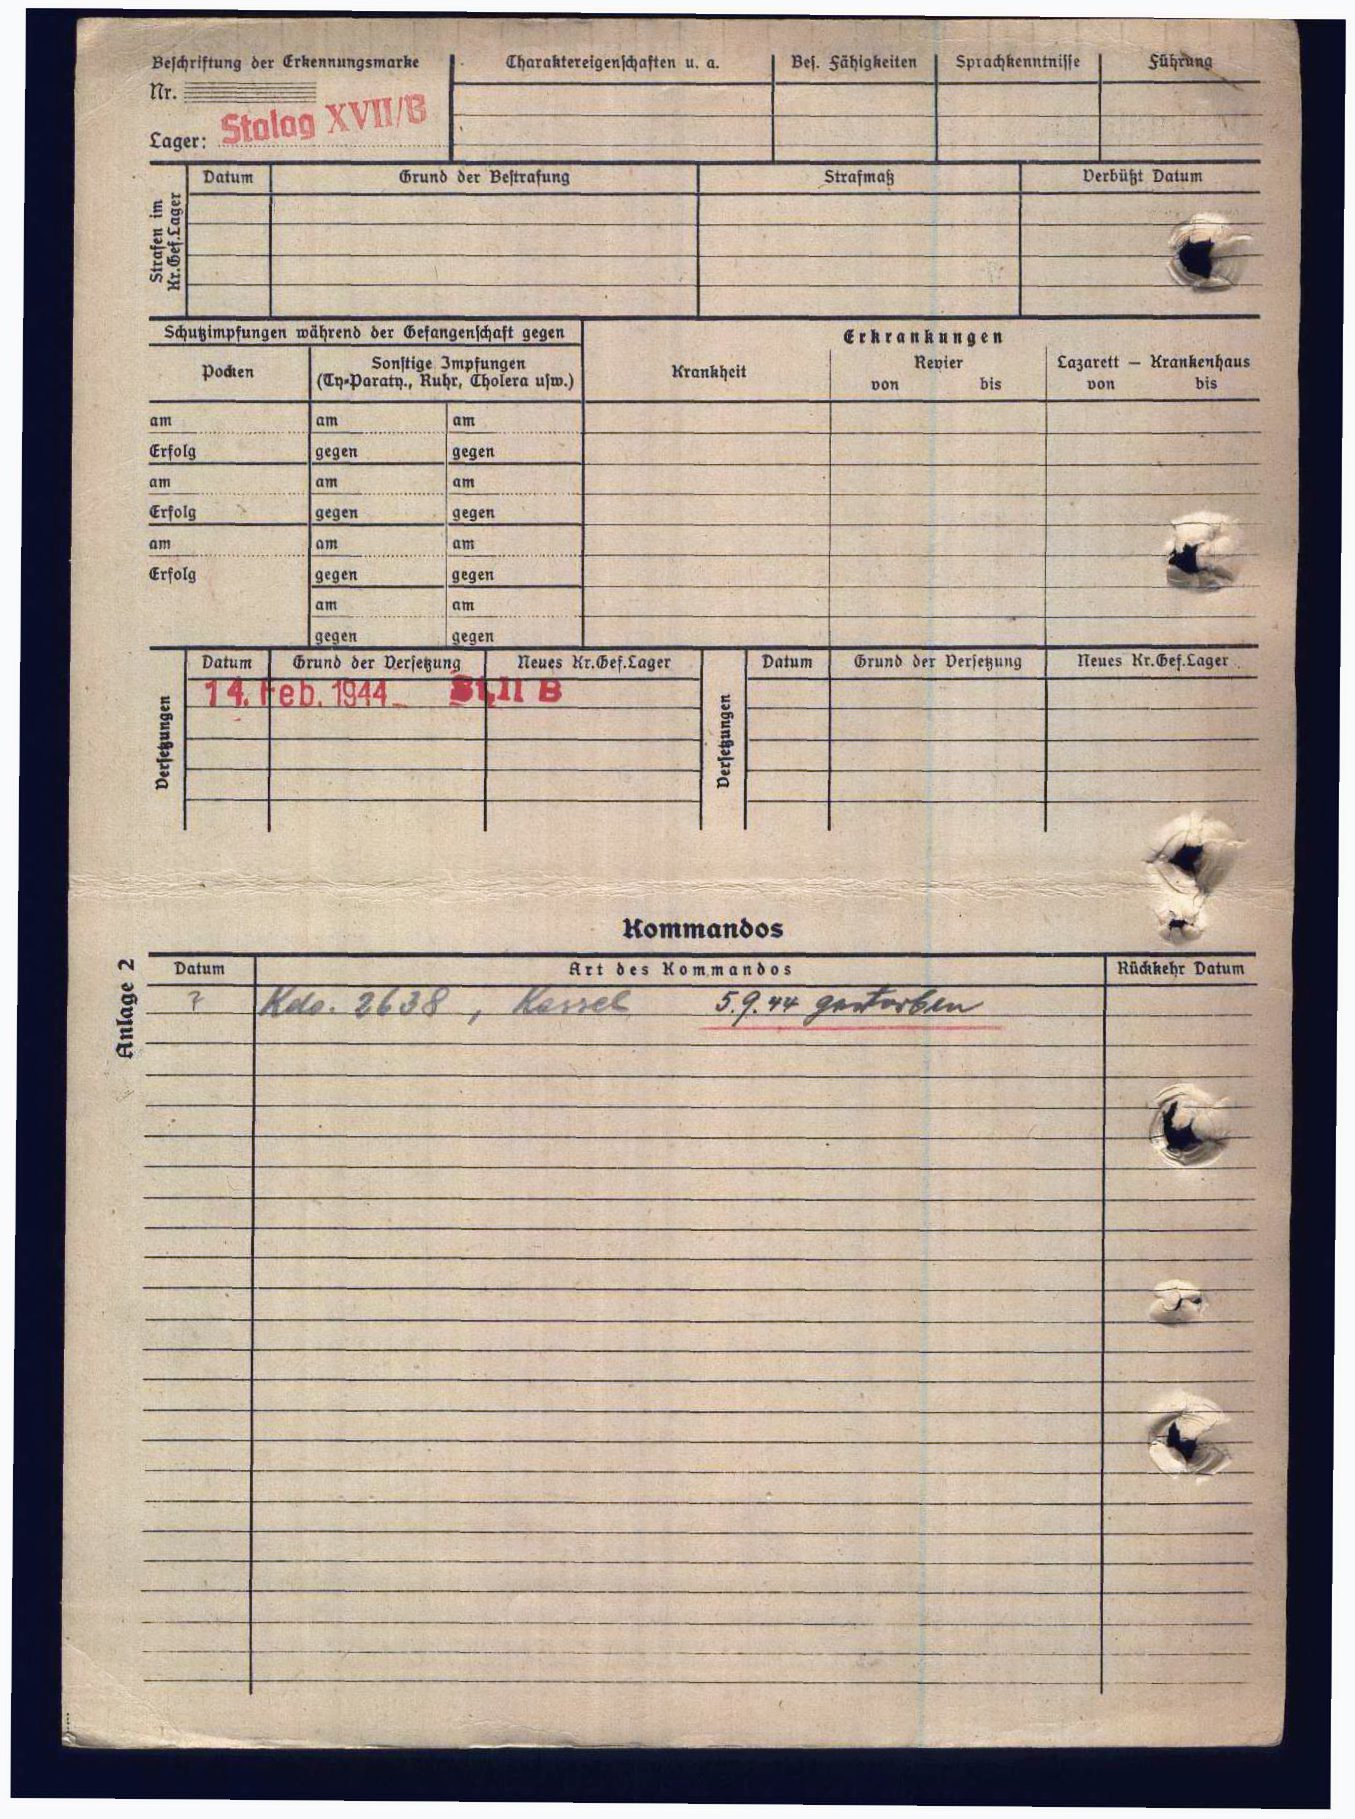 Beschriftung der Erkennungsmarke
Nr.
Lager: Stalag XVII/B
Charaktereigenschaften u. a.
Bes. Fähigkeiten
Sprachkenntnisse
Führung
Strafen im
Kr.Gef.Lager
Datum
Grund der Bestrafung
Strafmaß
Verbüßt Datum
Schutzimpfungen während der Gefangenschaft gegen
Pocken
Sonstige Impfungen
(Ty-Paraty., Ruhr, Cholera usw.)
am am am
Erfolg gegen gegen
am am am
Erfolg gegen gegen
am am am
Erfolg gegen gegen
am am
gegen gegen
Erkrankungen
Krankheit
Revier
von bis
Lazarett – Krankenhaus
von bis
Versetzungen
Datum Grund der Versetzung Neues Kr.Gef.Lager
14. Feb. 1944 St.II B
Versetzungen
Datum Grund der Versetzung Neues Kr.Gef.Lager
Kommandos
Anlage 2
Datum Art des Kommandos Rückkehr Datum
? Kdo. 2638, Kassel 5.9.44 gestorben